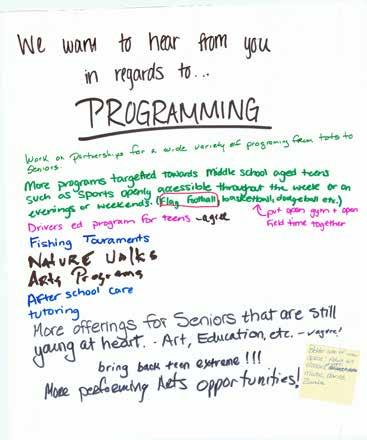 We want to hear from you
in regards to...
PROGRAMMING
Work on Partnerships for a wide variety of programing from tots to
Seniors.
More programs targeted towards Middle school aged teens
such as Sports openly accessible throughout the week or on
evenings or weekends. (Flag Football, basketball, dodgeball etc.)
put open gym + open
field time together
Drivers ed program for teens - aged
Fishing Touraments
NATURE WALKS
Arts Programs
After school care
tutoring
More offerings for Seniors that are still
young at heart. - Art, Education, etc. -
bring back teen extreme!!!
More performing Arts opportunities!